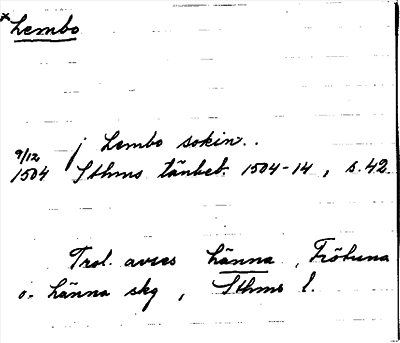 * Lembo
j Lembo sokin..
9/12
1504 Sthms tänkeb. 1504-14, s. 42.
Trol. avses Länna, Frötuna
o. Länna skg, Sthms l.